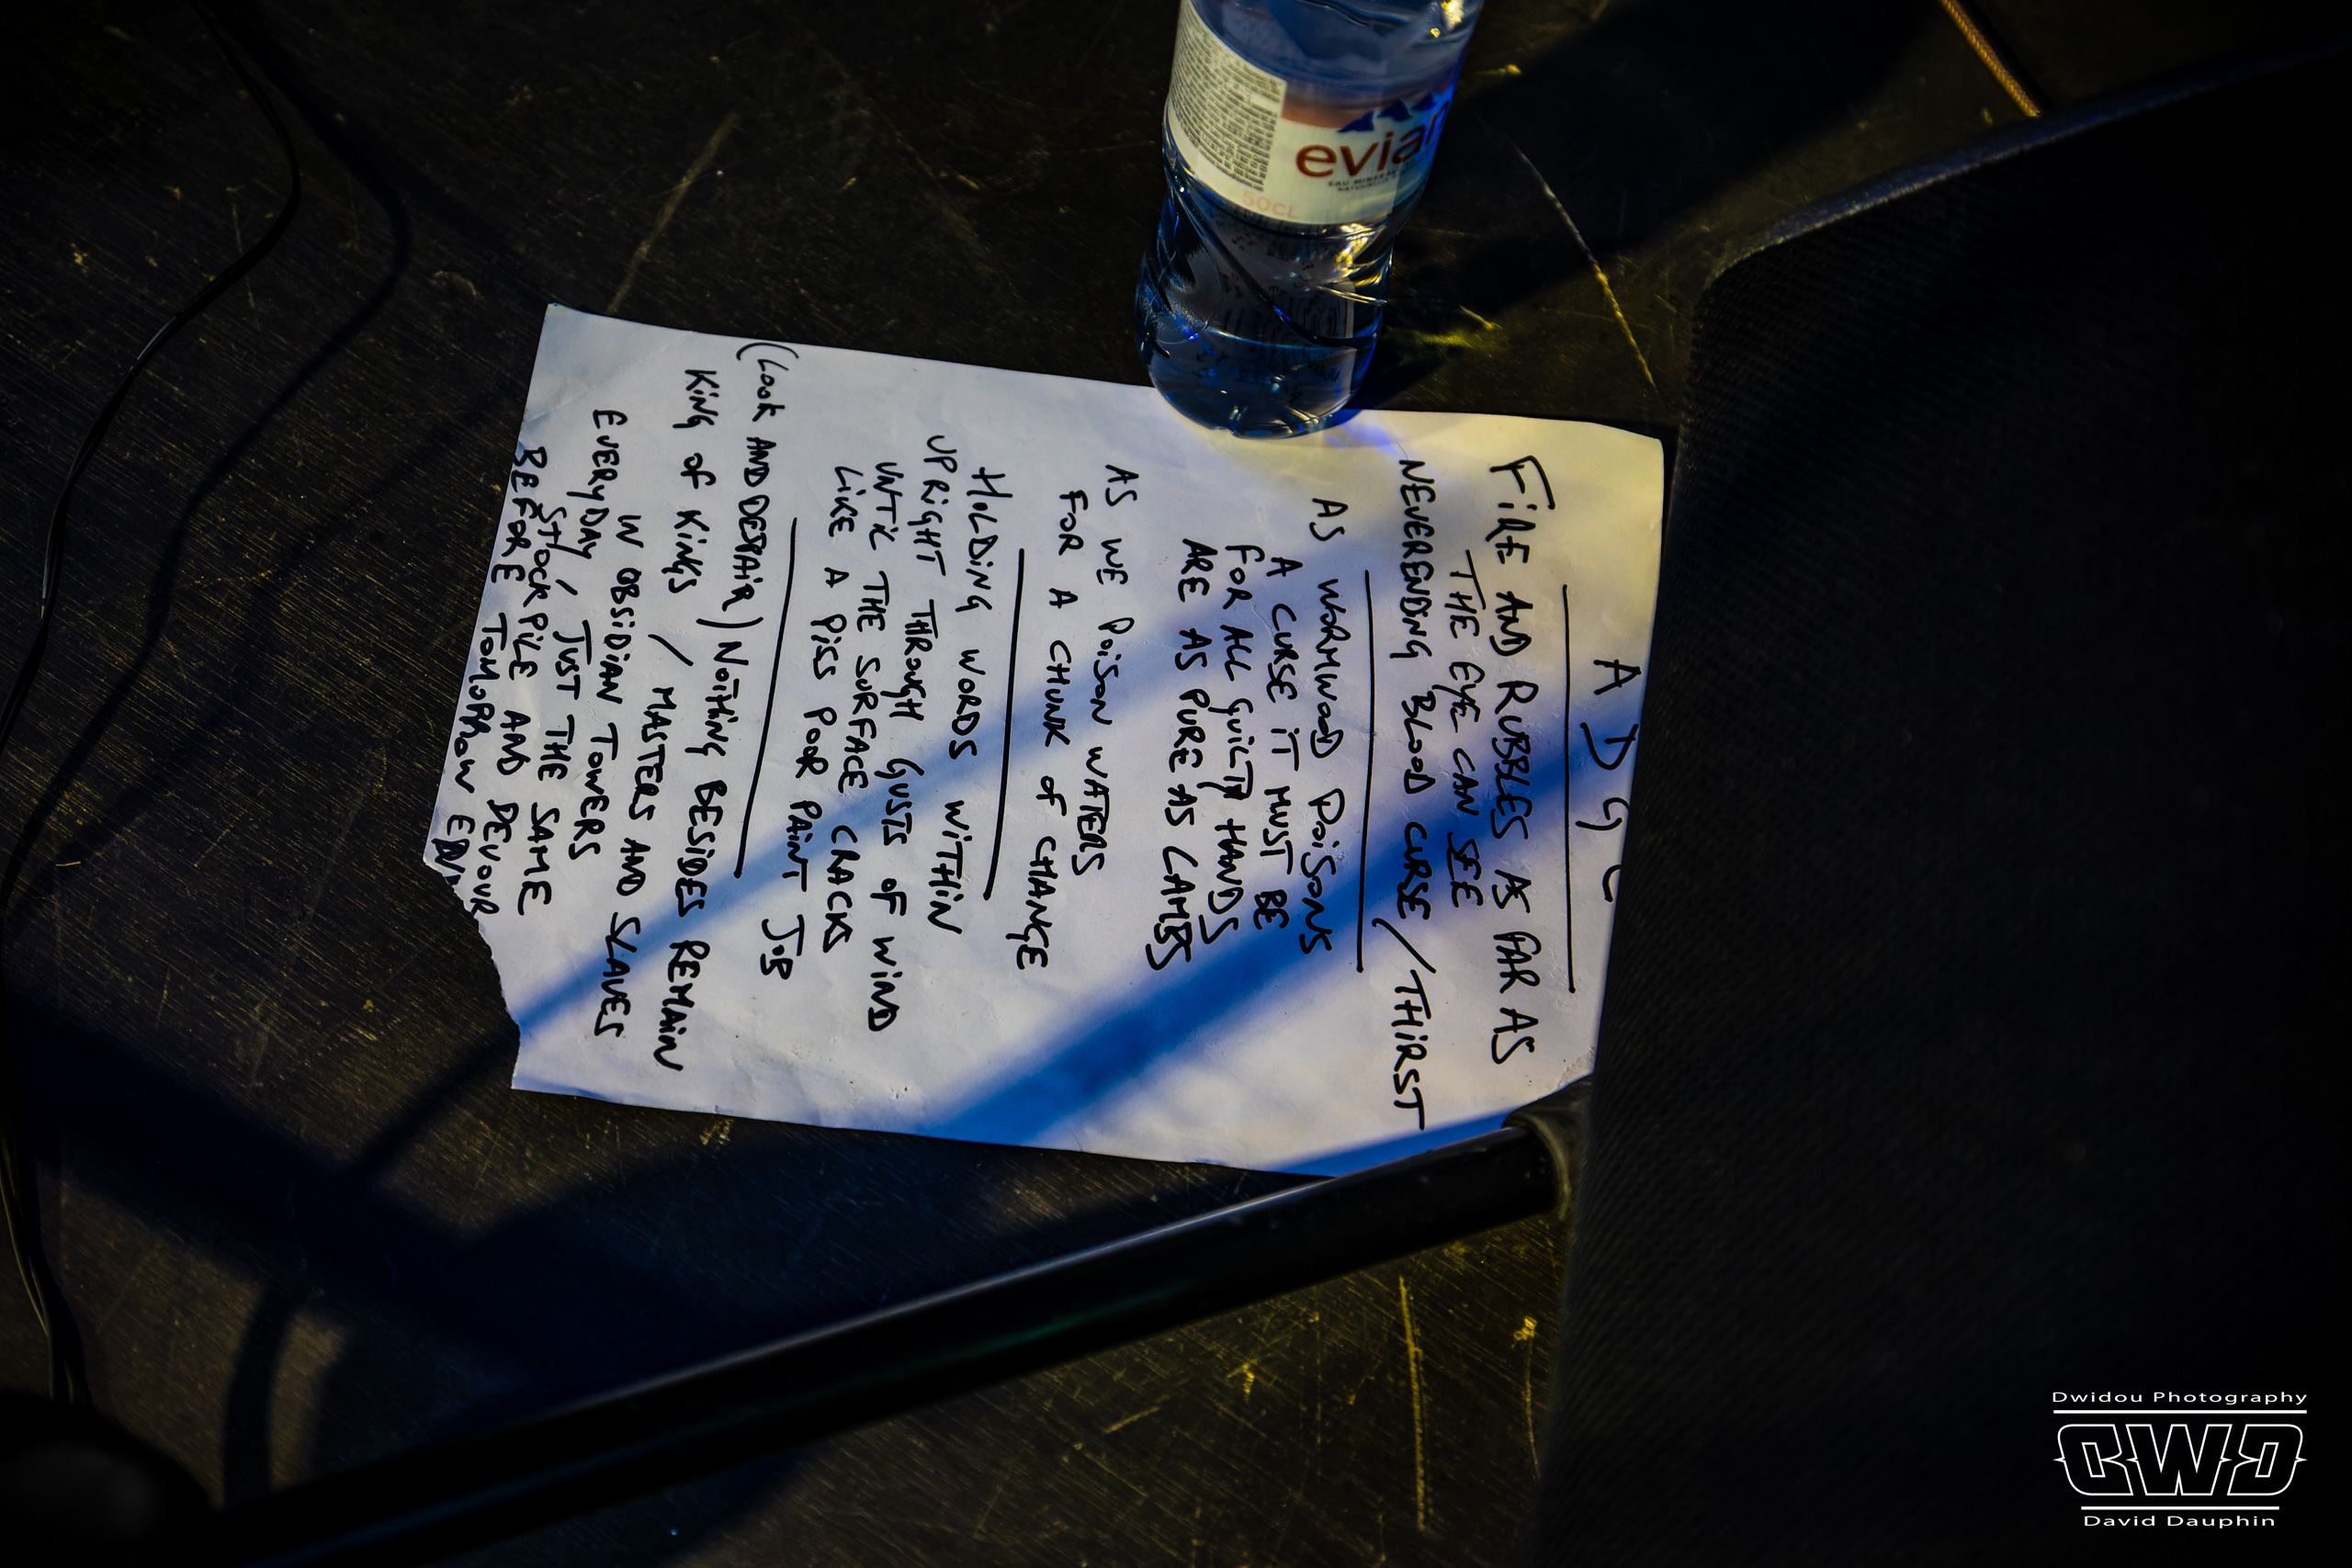 A D G C
FIRE AND RUBBLES AS FAR AS
THE EYE CAN SEE
NEVERENDING BLOOD CURSE / THIRST
AS WORMWOOD POISONS
A CURSE IT MUST BE
FOR ALL GUILTY HANDS
ARE AS PURE AS LAMBS
AS WE POISON WATERS
FOR A CHUNK OF CHANGE
HOLDING WORDS WITHIN
UPRIGHT THROUGH GUSTS OF WIND
UNTIL THE SURFACE CRACKS
LIKE A PISS POOR PAINT JOB
(LOOK AND DESPAIR) NOTHING BESIDES REMAIN
KING OF KINGS / MASTERS AND SLAVES
IN OBSIDIAN TOWERS
EVERYDAY / JUST THE SAME
STOCKPILE AND DEVOUR
BEFORE TOMORROW
evian
EAU MINÉRALE
NATURELLE
50CL
Dwidou Photography
DWD
David Dauphin